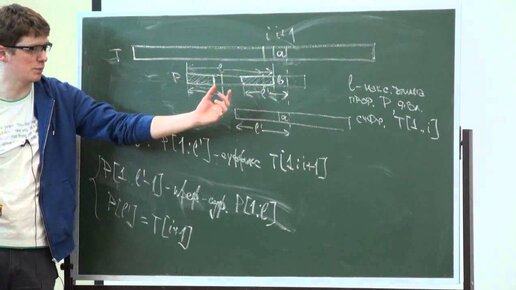 i i+1
T a
P l b
l' l'
l - макс. длина
преф. P явл.
a
суфф. T[1..i]
P[1..l'] - суффикс T[1..i+1]
P[1..l'-1] - преф-суф. P[1..l]
P[l'] = T[i+1]